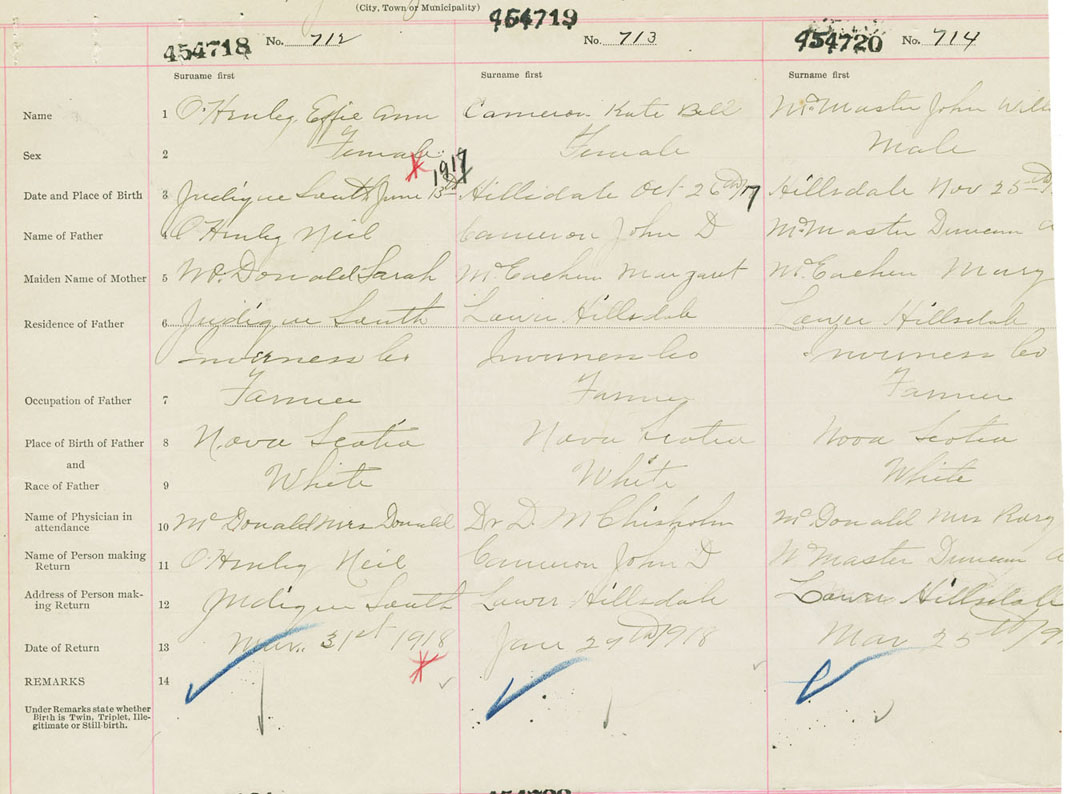 (City, Town or Municipality)
454718 No. 712 454719 No. 713 454720 No. 714
Surname first Surname first Surname first
Name 1 O'Henley, Effie Ann Cameron Kate Bell McMaster John Will
Sex 2 Female Female Male
1917
Date and Place of Birth 3 Judique South June 13th Hillsdale Oct 26th 17 Hillsdale Nov 25th
Name of Father 4 O'Henley Neil Cameron John D McMaster Duncan A
Maiden Name of Mother 5 McDonald Sarah McEachen Margaret McEachen Mary
Residence of Father 6 Judique South Lower Hillsdale Lower Hillsdale
Inverness Co Inverness Co Inverness Co
Occupation of Father 7 Farmer Farmer Farmer
Place of Birth of Father 8 Nova Scotia Nova Scotia Nova Scotia
and
Race of Father 9 White White White
Name of Physician in
attendance 10 McDonald Mrs Donald Dr D. M Chisholm McDonald Mrs Rory
Name of Person making
Return 11 O'Henley Neil Cameron John D McMaster Duncan A
Address of Person mak-
ing Return 12 Judique South Lower Hillsdale Lower Hillsdale
Date of Return 13 Mar. 31st 1918 Jan 29th 1918 Mar 25th 19
REMARKS 14
Under Remarks state whether
Birth is Twin, Triplet, Ille-
gitimate or Still-birth.